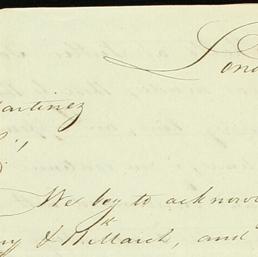 Lond
Martinez
We beg to acknow
& March, and